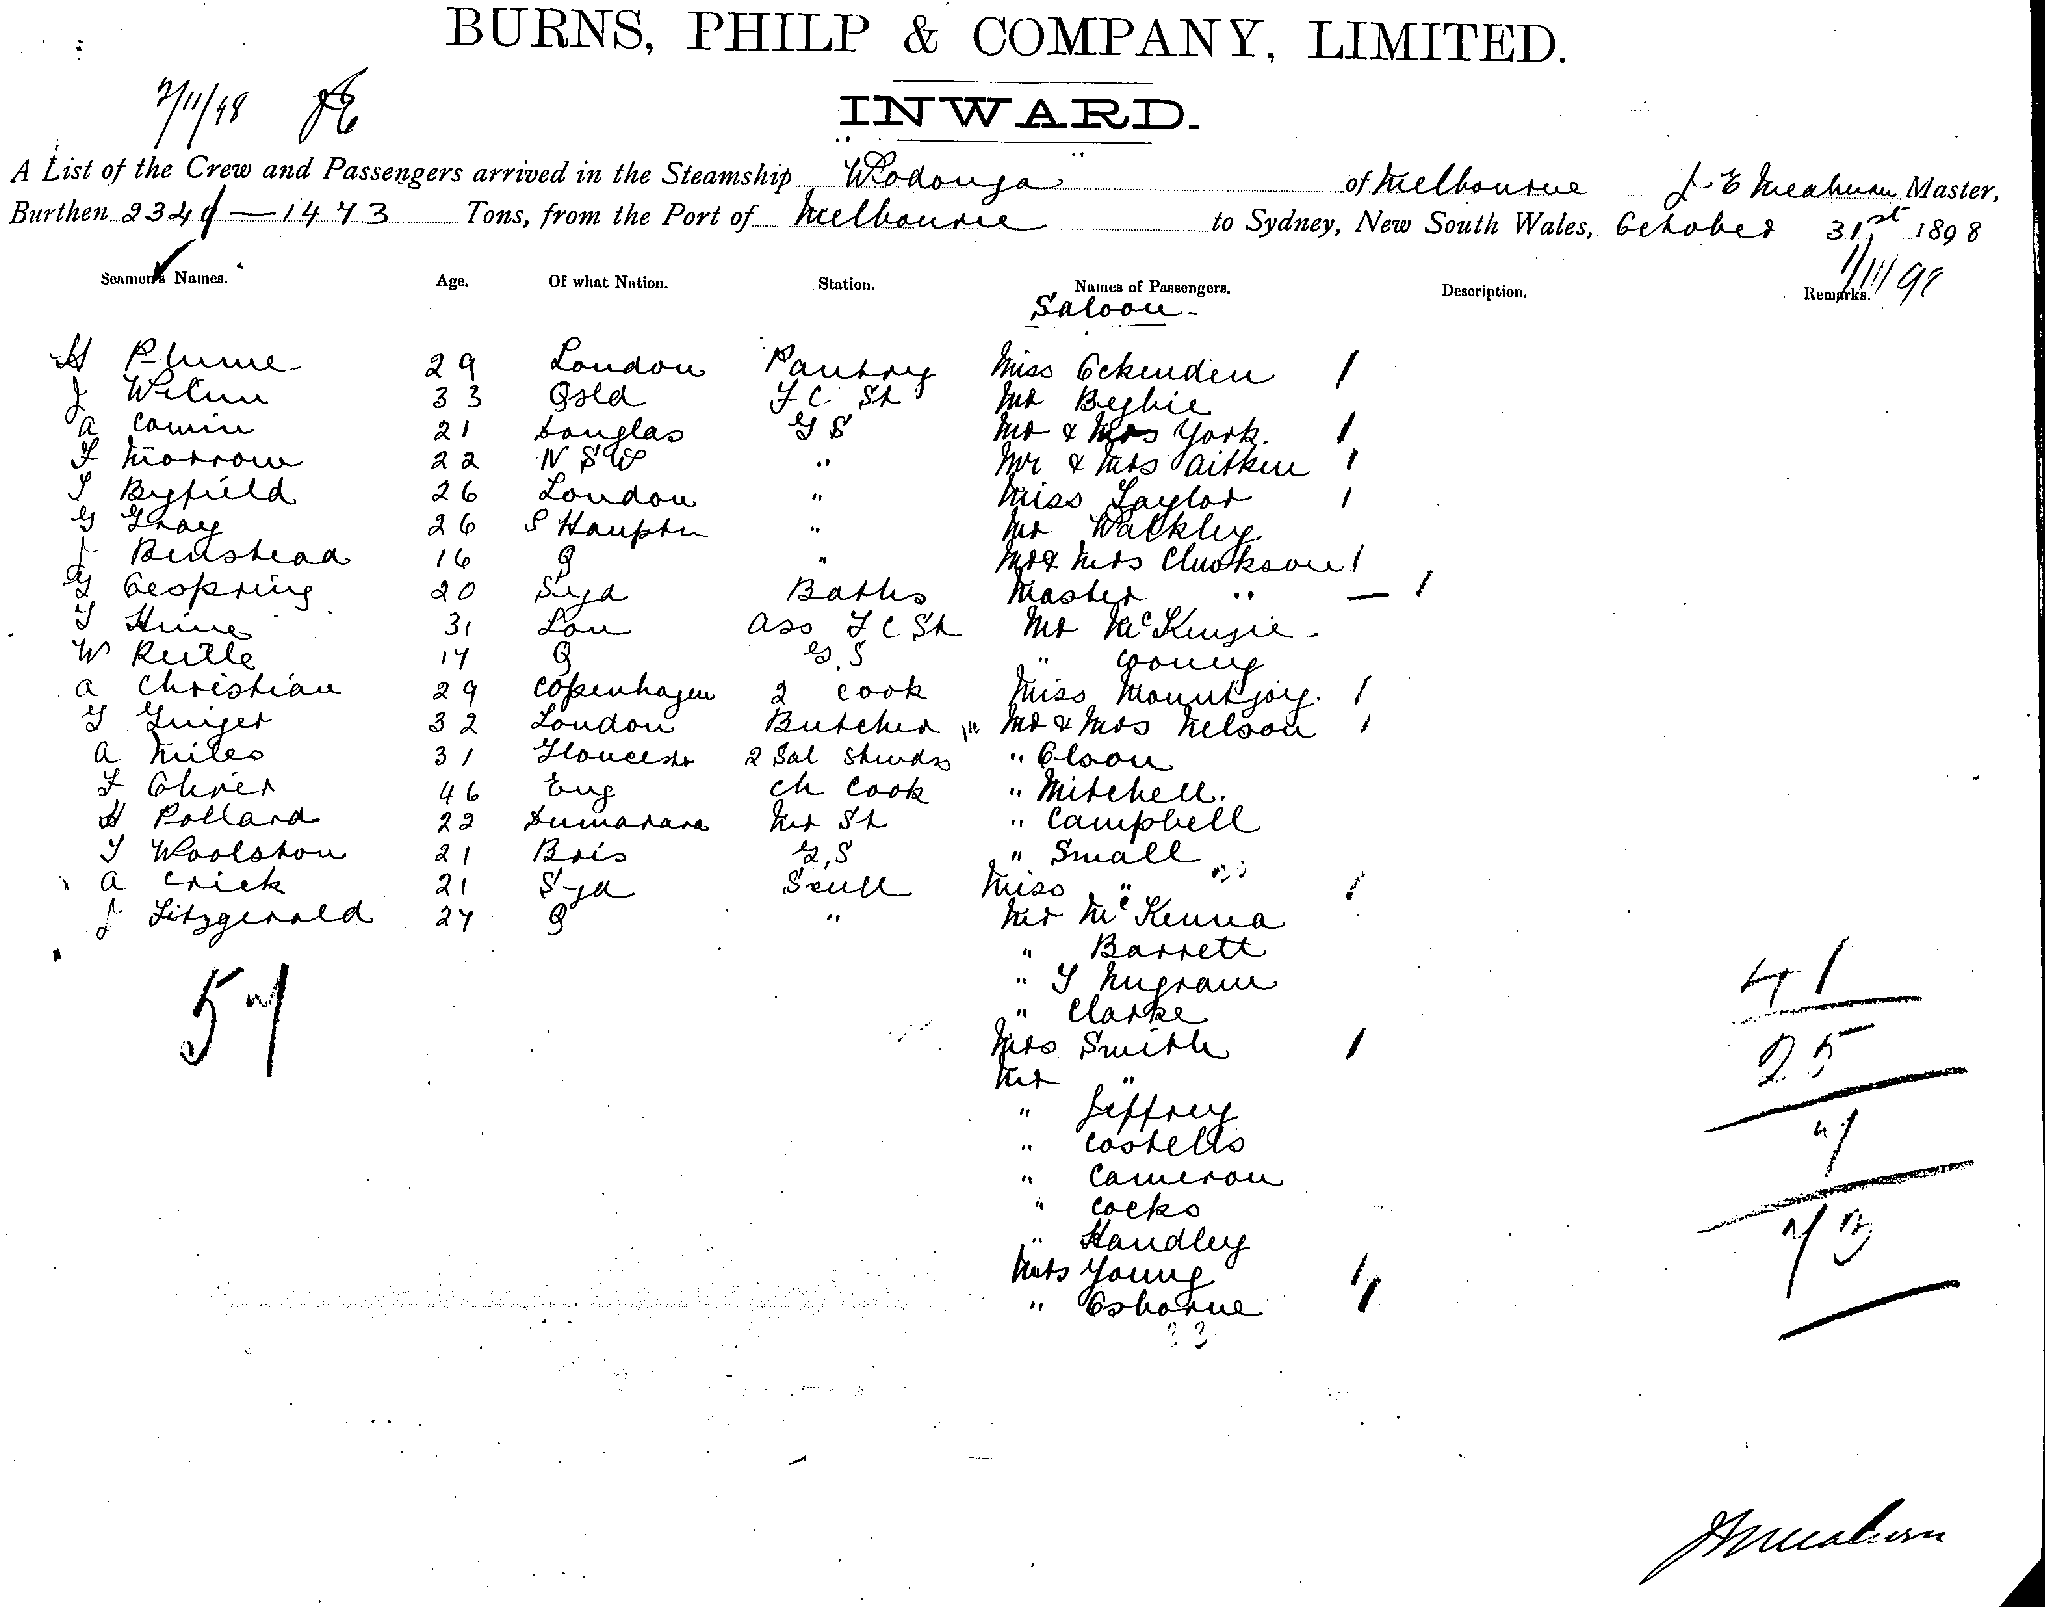 BURNS, PHILP & COMPANY, LIMITED.
2/11/98 JE
INWARD.
A List of the Crew and Passengers arrived in the Steamship Wodonga of Melbourne J E Meaburn Master,
Burthen 2341 — 1473 Tons, from the Port of Melbourne to Sydney, New South Wales, October 31st 1898
1/11/98
Seamen's Names. Age. Of what Nation. Station. Names of Passengers. Description. Remarks.
Saloon
H Plume 29 London Pantry Miss Eckenden 1
J 33 Qsld F C St Mr Begbie
A Comin 21 Douglas G S Mr & Mrs York. 1
F Morrow 22 N S W " Mr & Mrs Aitken 1
T Byfield 26 London " Miss Taylor 1
G Gray 26 S Hampton " Mr Walkley
J Binstead 16 Q " Mr & Mrs Clarkson 1
G Gespring 20 Syd Baths Master " — 1
T Hime 31 Lon Ass F C St Mr McKenzie
W 17 Q G.S " Young
A Christian 29 Copenhagen 2 Cook Miss Mountjoy. 1
G Guiger 32 London Butcher Mr & Mrs Nelson 1
A Miles 31 Gloucester 2 Sal Stwds " Olson
F Oliver 46 Eng Ch Cook " Mitchell.
H Pollard 22 Dumarara Mr St " Campbell
T Woolston 21 Bris G.S " Small
A Crick 21 Syd Scull Miss " 1
J Fitzgerald 27 Q " Mr McKenna
" Barrett
" T Nugram
" Clarke
57
41
Mrs Smith 1
25
Mr "
" Jeffrey
7
" Costello
" Cameron
" Cocks
73
" Handley
Mrs Young 1
" Osborne 1
33
J E Meaburn